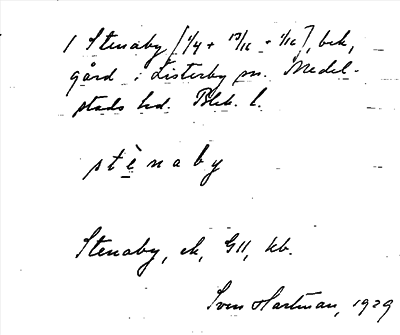 1 Stenaby [1/4 + 13/16 - 1/16], bek,
gård i Listerby sn. Medel-
stads hd. Blek. l.
stènaby
Stenaby, ek, GII, kb.
Sven Hartman, 1929